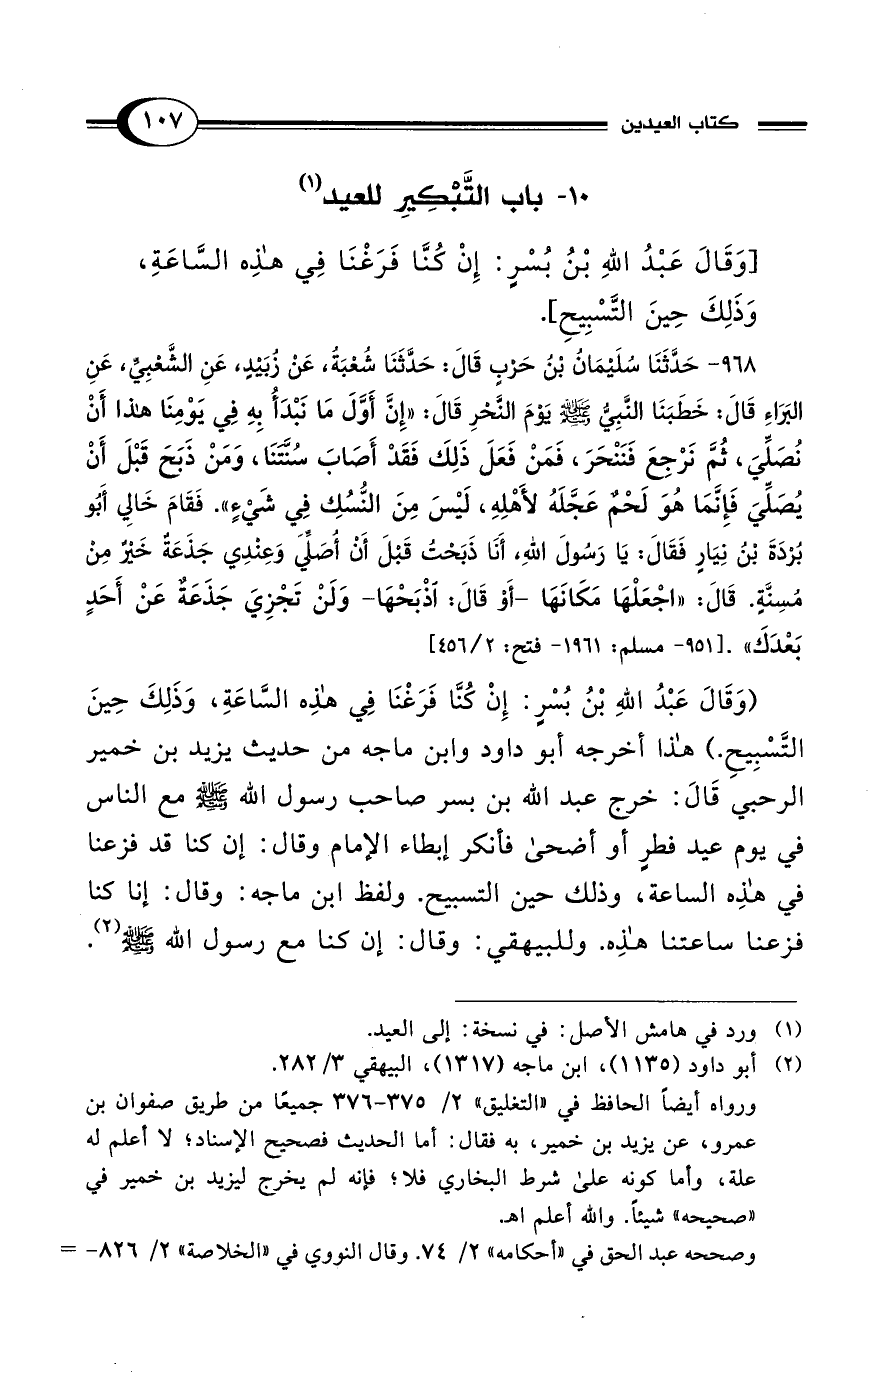 كتاب العيدين ١٠٧
١٠- باب التَّبْكِيرِ للعيد(١)
[وَقَالَ عَبْدُ اللهِ بْنُ بُسْرٍ: إِنْ كُنَّا فَرَغْنَا فِي هٰذِه السَّاعَةِ،
وَذَلِكَ حِينَ التَّسْبِيحِ].
٩٦٨- حَدَّثَنَا سُلَيْمَانُ بْنُ حَرْبٍ قَالَ: حَدَّثَنَا شُعْبَةُ، عَنْ زُبَيْدٍ، عَنِ الشَّعْبِيِّ، عَنِ
البَرَاءِ قَالَ: خَطَبَنَا النَّبِيُّ ﷺ يَوْمَ النَّحْرِ قَالَ: «إِنَّ أَوَّلَ مَا نَبْدَأُ بِهِ فِي يَوْمِنَا هٰذا أَنْ
نُصَلِّيَ، ثُمَّ نَرْجِعَ فَنَنْحَرَ، فَمَنْ فَعَلَ ذَلِكَ فَقَدْ أَصَابَ سُنَّتَنَا، وَمَنْ ذَبَحَ قَبْلَ أَنْ
يُصَلِّيَ فَإِنَّمَا هُوَ لَحْمٌ عَجَّلَهُ لأَهْلِهِ، لَيْسَ مِنَ النُّسُكِ فِي شَيْءٍ». فَقَامَ خَالِي أَبُو
بُرْدَةَ بْنُ نِيَارٍ فَقَالَ: يَا رَسُولَ اللهِ، أَنَا ذَبَحْتُ قَبْلَ أَنْ أُصَلِّيَ وَعِنْدِي جَذَعَةٌ خَيْرٌ مِنْ
مُسِنَّةٍ. قَالَ: «اجْعَلْهَا مَكَانَهَا -أَوْ قَالَ: ٱذْبَحْهَا- وَلَنْ تَجْزِيَ جَذَعَةٌ عَنْ أَحَدٍ
بَعْدَكَ» .[٩٥١- مسلم: ١٩٦١- فتح: ٤٥٦/٢]
(وَقَالَ عَبْدُ اللهِ بْنُ بُسْرٍ: إِنْ كُنَّا فَرَغْنَا فِي هٰذِه السَّاعَةِ، وَذَلِكَ حِينَ
التَّسْبِيحِ.) هٰذا أخرجه أبو داود وابن ماجه من حديث يزيد بن خمير
الرحبي قَالَ: خرج عبد الله بن بسر صاحب رسول الله ﷺ مع الناس
في يوم عيد فطرٍ أو أضحىٰ فأنكر إبطاء الإمام وقال: إن كنا قد فزعنا
في هٰذِه الساعة، وذلك حين التسبيح. ولفظ ابن ماجه: وقال: إنا كنا
فزعنا ساعتنا هٰذِه. وللبيهقي: وقال: إن كنا مع رسول الله ﷺ(٢).
(١) ورد في هامش الأصل: في نسخة: إلى العيد.
(٢) أبو داود (١١٣٥)، ابن ماجه (١٣١٧)، البيهقي ٣/ ٢٨٢.
ورواه أيضاً الحافظ في «التغليق» ٢/ ٣٧٥-٣٧٦ جميعًا من طريق صفوان بن
عمرو، عن يزيد بن خمير، به فقال: أما الحديث فصحيح الإسناد؛ لا أعلم له
علة، وأما كونه علىٰ شرط البخاري فلا؛ فإنه لم يخرج ليزيد بن خمير في
«صحيحه» شيئاً. والله أعلم اهـ.
وصححه عبد الحق في «أحكامه» ٢/ ٧٤. وقال النووي في «الخلاصة» ٢/ ٨٢٦- =